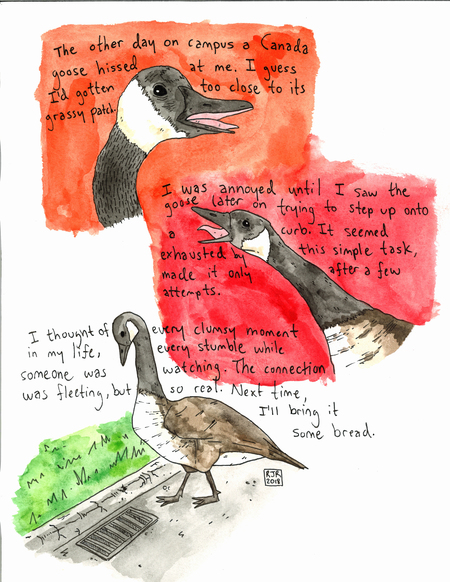 The other day on campus a Canada
goose hissed at me. I guess
I'd gotten too close to its
grassy patch.
I was annoyed until I saw the
goose later on trying to step up onto
a curb. It seemed
exhausted by this simple task,
made it only after a few
attempts.
I thought of every clumsy moment
in my life, every stumble while
someone was watching. The connection
was fleeting, but so real. Next time,
I'll bring it
some bread.
RJR
2018